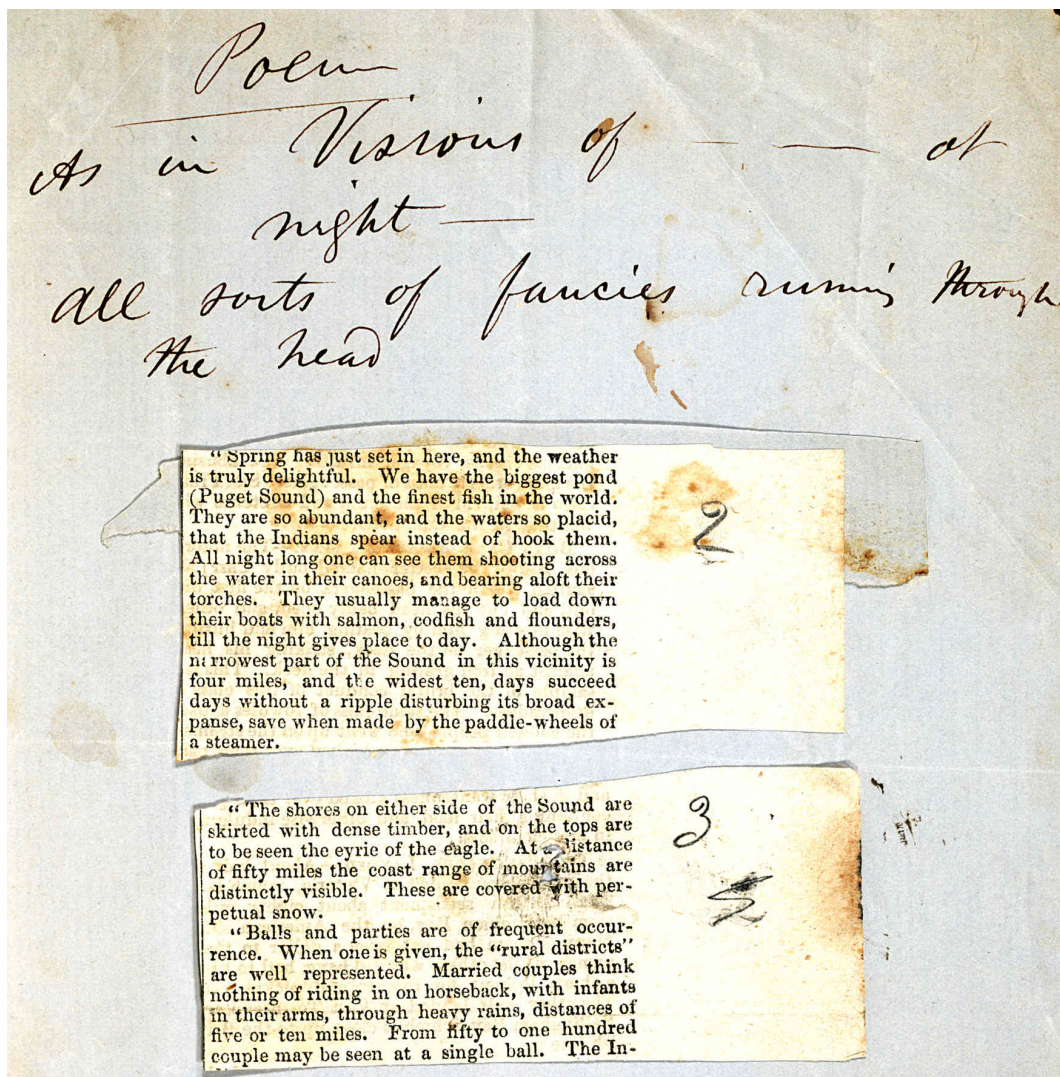 Poem
As in Visions of — — at
night —
All sorts of fancies running through
the head
“Spring has just set in here, and the weather
is truly delightful. We have the biggest pond
(Puget Sound) and the finest fish in the world.
They are so abundant, and the waters so placid,
that the Indians spear instead of hook them.
All night long one can see them shooting across
the water in their canoes, and bearing aloft their
torches. They usually manage to load down
their boats with salmon, codfish and flounders,
till the night gives place to day. Although the
narrowest part of the Sound in this vicinity is
four miles, and the widest ten, days succeed
days without a ripple disturbing its broad ex-
panse, save when made by the paddle-wheels of
a steamer.
2
“The shores on either side of the Sound are
skirted with dense timber, and on the tops are
to be seen the eyrie of the eagle. At a distance
of fifty miles the coast range of mountains are
distinctly visible. These are covered with per-
petual snow.
“Balls and parties are of frequent occur-
rence. When one is given, the “rural districts”
are well represented. Married couples think
nothing of riding in on horseback, with infants
in their arms, through heavy rains, distances of
five or ten miles. From fifty to one hundred
couple may be seen at a single ball. The In-
3